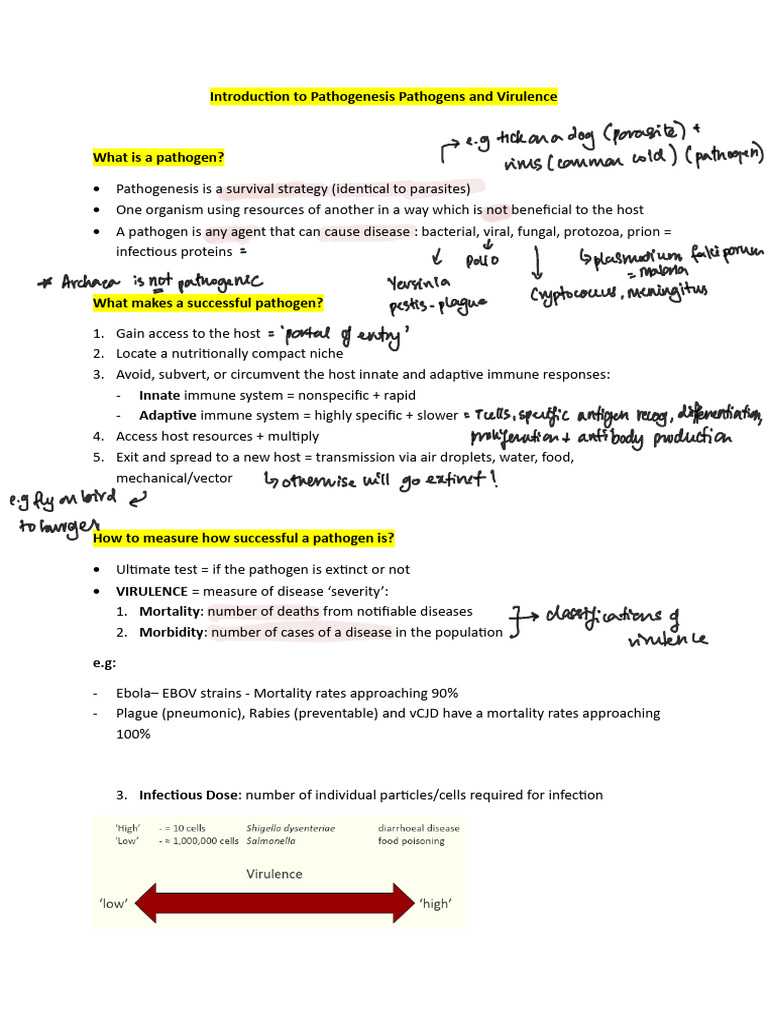 Introduction to Pathogenesis Pathogens and Virulence
→ e.g tick on a dog (parasite) +
virus (common cold) (pathogen)
What is a pathogen?
• Pathogenesis is a survival strategy (identical to parasites)
• One organism using resources of another in a way which is not beneficial to the host
• A pathogen is any agent that can cause disease : bacterial, viral, fungal, protozoa, prion =
infectious proteins =
↳ plasmodium falciparum
= malaria
Polio
Yersinia
pestis - plague
Cryptococcus, meningitus
* Archaea is not pathogenic
What makes a successful pathogen?
1. Gain access to the host = 'portal of entry'
2. Locate a nutritionally compact niche
3. Avoid, subvert, or circumvent the host innate and adaptive immune responses:
- Innate immune system = nonspecific + rapid
- Adaptive immune system = highly specific + slower = T cells, specific antigen recog, differentiation,
proliferation + antibody production
4. Access host resources + multiply
5. Exit and spread to a new host = transmission via air droplets, water, food,
mechanical/vector ↳ otherwise will go extinct!
e.g fly on bird
to burger
How to measure how successful a pathogen is?
• Ultimate test = if the pathogen is extinct or not
• VIRULENCE = measure of disease ‘severity’:
1. Mortality: number of deaths from notifiable diseases
2. Morbidity: number of cases of a disease in the population
→ classifications of
virulence
e.g:
- Ebola– EBOV strains - Mortality rates approaching 90%
- Plague (pneumonic), Rabies (preventable) and vCJD have a mortality rates approaching
100%
3. Infectious Dose: number of individual particles/cells required for infection
‘High’ - = 10 cells Shigella dysenteriae diarrhoeal disease
‘Low’ - ≈ 1,000,000 cells Salmonella food poisoning
Virulence
‘low’ ‘high’